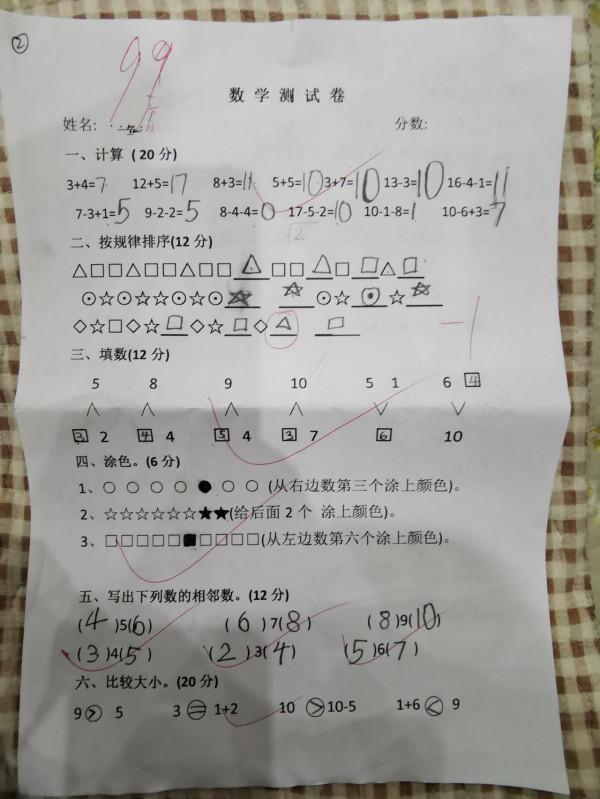 ②
99
数学测试卷
姓名: 分数:
一、计算（20分）
3+4=7 12+5=17 8+3=11 5+5=10 3+7=10 13-3=10 16-4-1=11
7-3+1=5 9-2-2=5 8-4-4=0 17-5-2=10 10-1-8=1 10-6+3=7
12
二、按规律排序(12分)
△□□△□□△□□△ □□△□□△□
⊙☆⊙☆☆⊙☆⊙☆ ☆ ⊙☆⊙☆☆
◇☆□◇☆□◇☆□◇△ □
-1
三、填数(12分)
5 8 9 10 5 1 6 4
∧ ∧ ∧ ∧ ∨ ∨
3 2 4 4 5 4 3 7 6 10
四、涂色。(6分)
1、○ ○ ○ ○ ● ○ ○ (从右边数第三个涂上颜色)。
2、☆☆☆☆☆☆★★(给后面2个 涂上颜色)。
3、□□□□□■□□□□(从左边数第六个涂上颜色)。
五、写出下列数的相邻数。(12分)
(4)5(6) (6)7(8) (8)9(10)
(3)4(5) (2)3(4) (5)6(7)
六、比较大小。(20分)
9>5 3=1+2 10>10-5 1+6<9